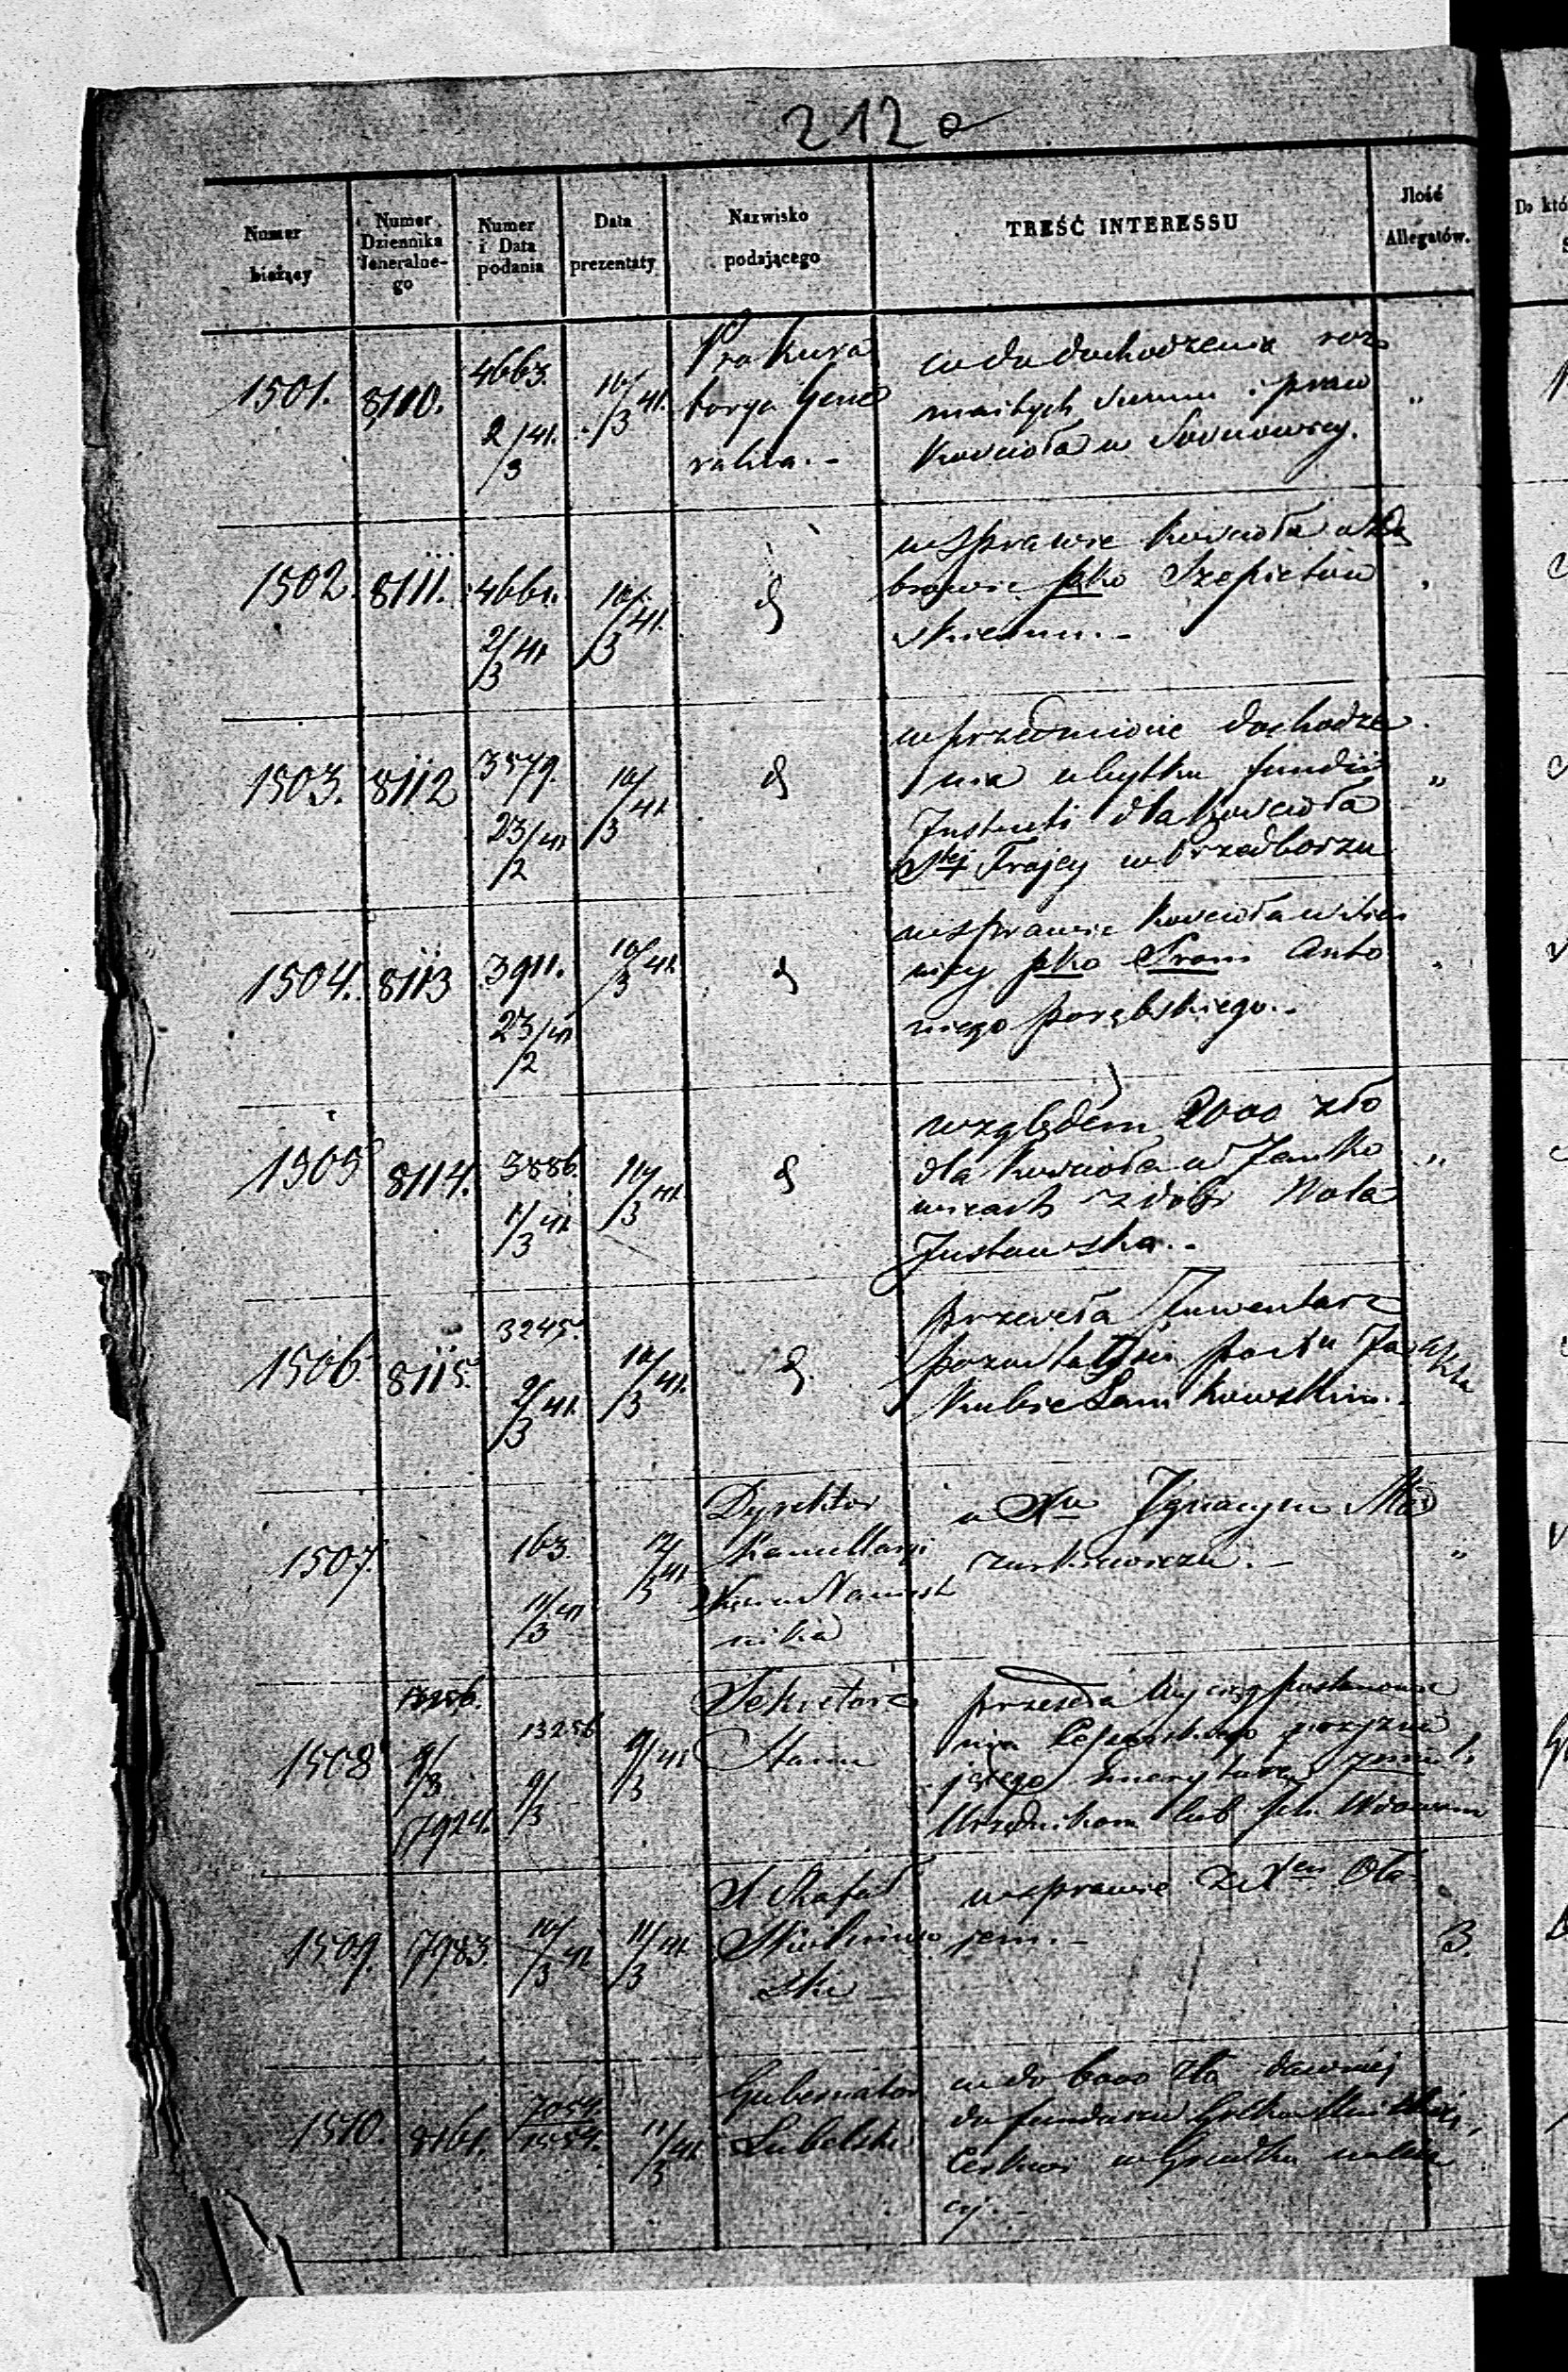 212
Numer bieżący
Numer Dziennika Jeneralne-go
Numer i Data podania
Data prezentaty
Nazwisko podającego
TREŚĆ INTERESSU
Ilość Allegatów.
Do któ
1501.
8110.
4663.
2/3 41.
10/3 41.
Prokura
torya Gene
ralna.-
co do dochodzenia roz
maitych summ i praw
Kościoła w
"
1502.
8111.
4661.
2/3 41
10/3 41.
d
w sprawie Kościoła w
browie pko Szepietow
skiemu.-
1503.
8112
3579.
23/2 41
10/3 41.
d
w przedmiocie dochodze
nia ubytku fundu
dla Kościoła
Stej Trojcy w Przedborzu
"
1504.
8113
3911.
23/2 41
10/3 41.
d
w sprawie Kościoła w
nicy pko Srom Anto
niego Porębskiego.-
1505
8114.
3886.
1/3 41.
10/3 41.
d
względem 2000 zło
dla Kościoła w Janko
wicach z dóbr Wola
Justowska.-
"
1506.
8115.
3245.
2/3 41.
10/3 41.
d.
przesyła Inwentarz
pozostałości po Xu Ja
kubie Lam kowskim.-
1507.
163.
11/3 41
12/3 41
Dyrektor
Kancellaryi
Xięcia Namiest
nika
o Xu Ignacym Ma
zurkiewiczu.-
"
1508
9/3
7924.
13256
9/3
9/3 41
Sekretarz
Stanu
przesyła Wyciąg postanowie
nia przyzna
jącego Emeryturę
Urzędnikom lub ich Wdowom
1.
1509.
7983.
10/3 41
11/3 41.
X Rafał
ski
w sprawie z Xem Oła
jem.-
3.
1510.
8161.
7054
1554.
11/3 41.
Gubernator
Lubelski
co do 6000 Zło dawniej
do funduszu
Cerkwi w Gródku należą
cej.-